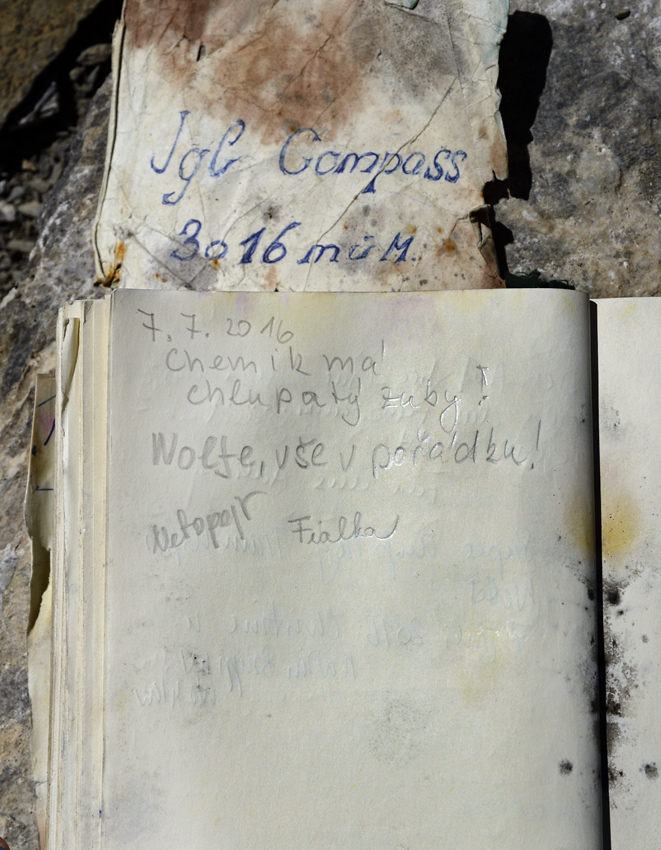 Jgl Compass
3016 müM.
7. 7. 2016
Chemik má
chlupatý zuby!
Wolfe, vše v pořádku!
Netopejr Fialka